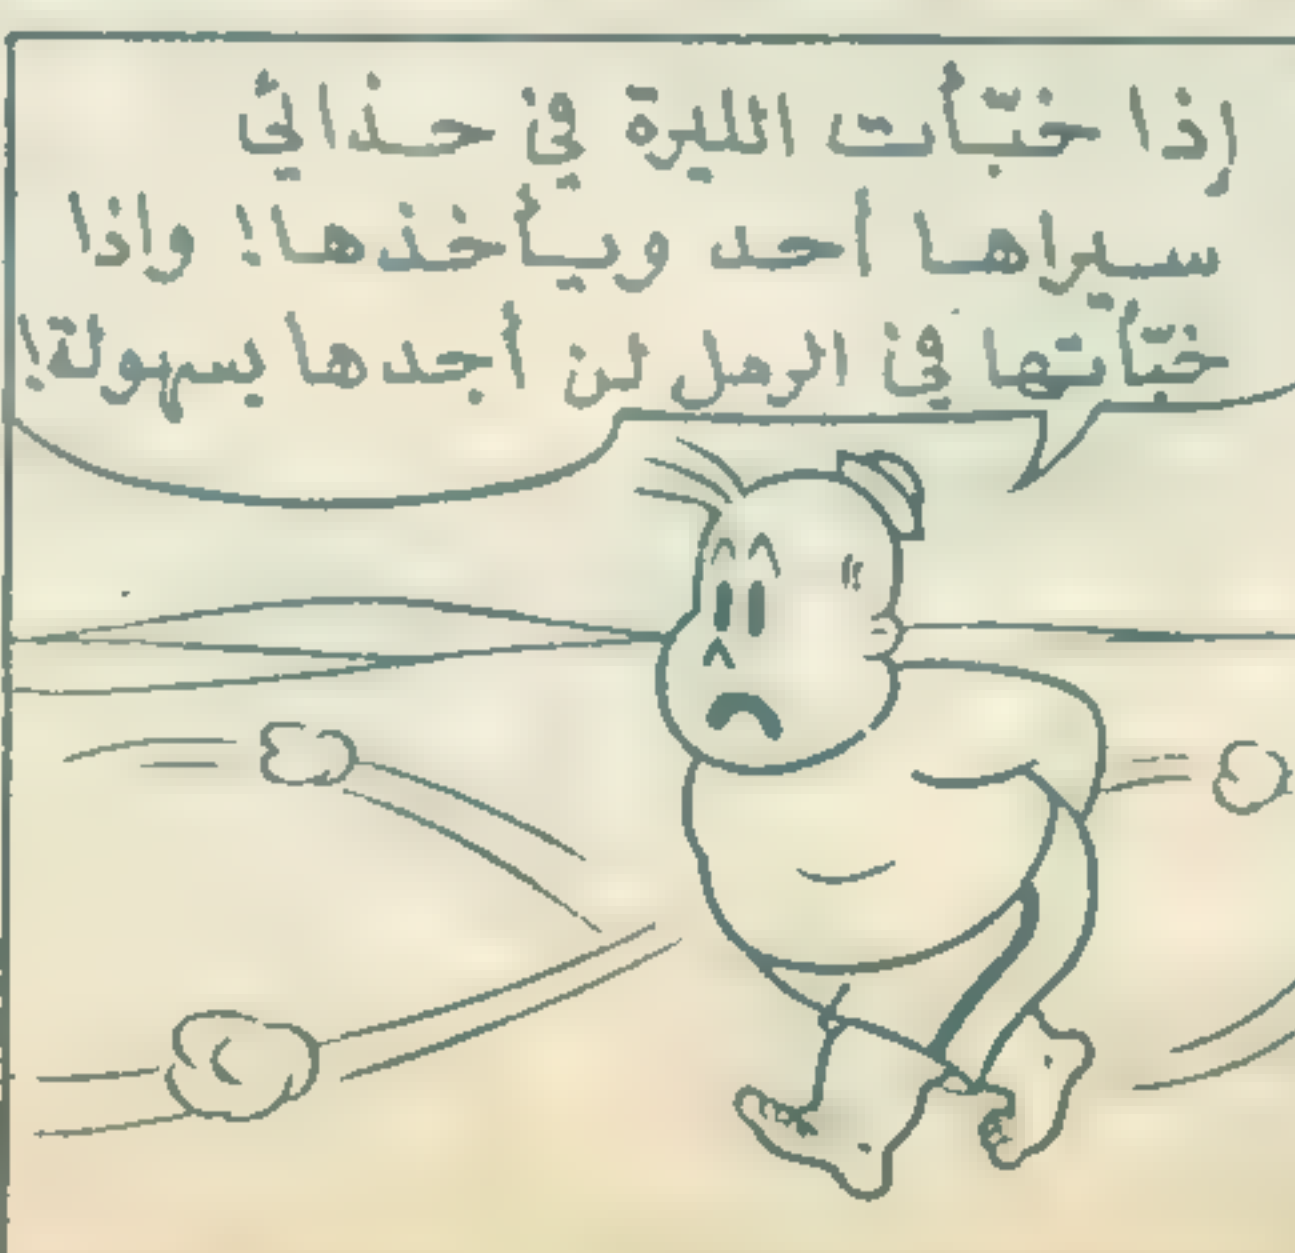 إذا خبّأت الليرة في حذائي
سيراها أحد ويأخذها! واذا
خبّأتها في الرمل لن أجدها بسهولة!